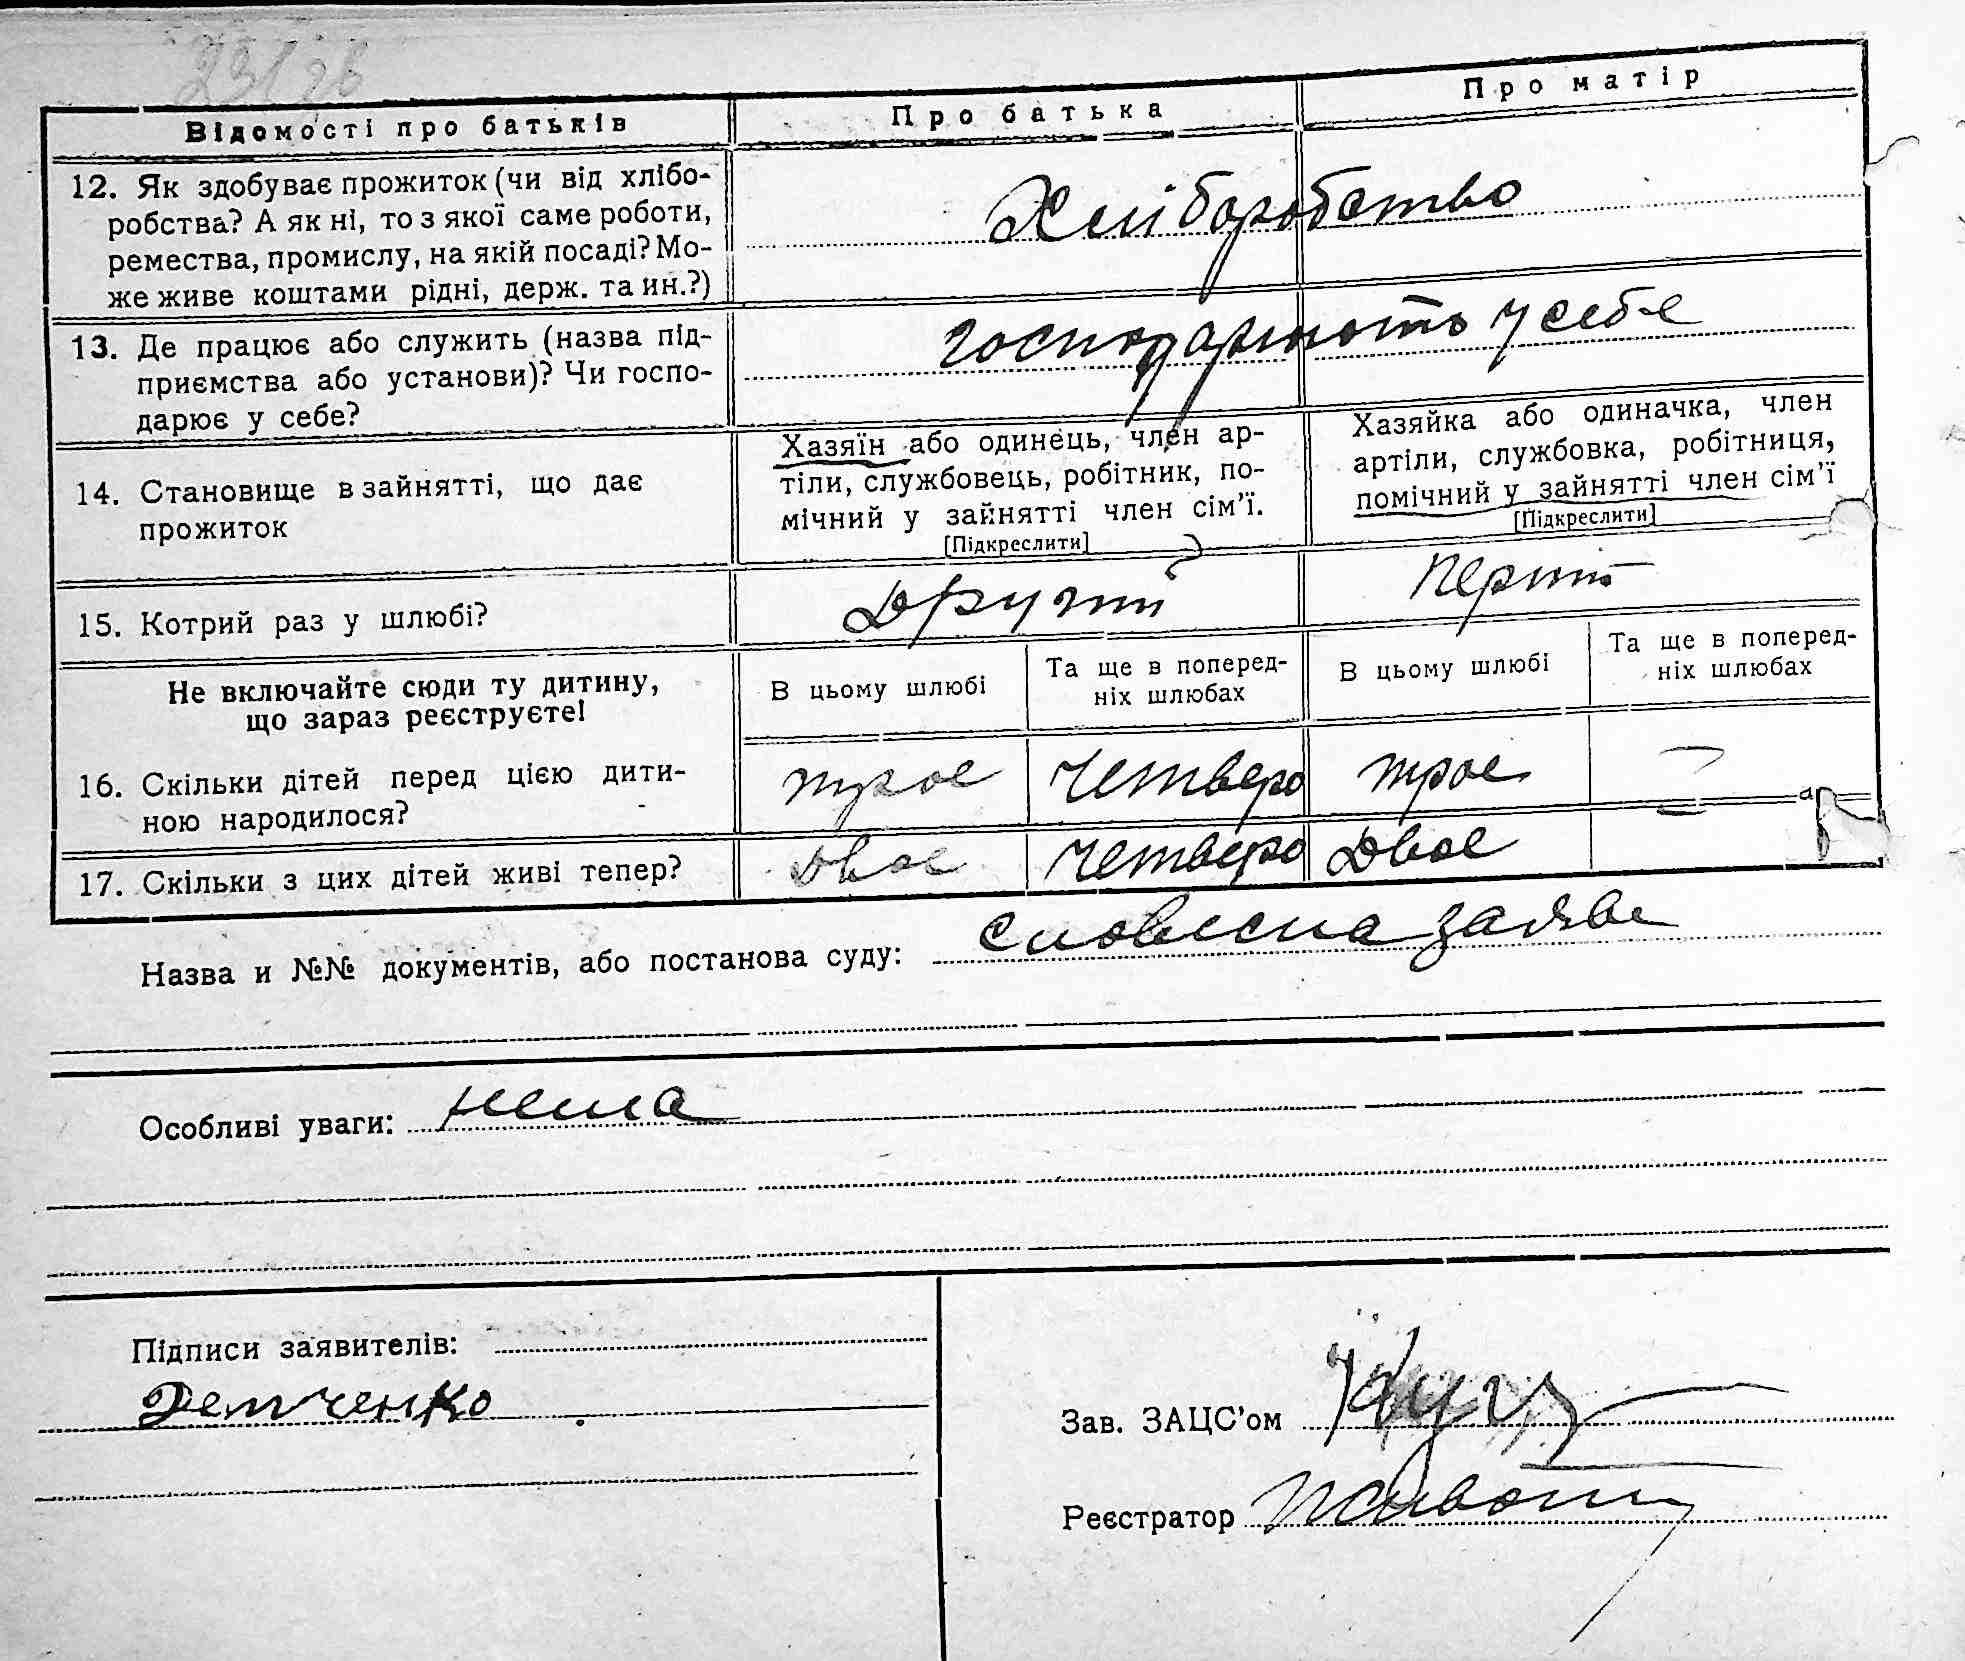 Відомості про батьків Про батька Про матір
12. Як здобуває прожиток (чи від хлібо-
робства? А як ні, то з якої саме роботи,
ремества, промислу, на якій посаді? Мо-
же живе коштами рідні, держ. та ин.?)
Хліборобство
13. Де працює або служить (назва під-
приємства або установи)? Чи госпо-
дарює у себе?
господарюють у себе
14. Становище в зайнятті, що дає
прожиток
Хазяїн або одинець, член ар-
тіли, службовець, робітник, по-
мічний у зайнятті член сім'ї.
[Підкреслити]
Хазяйка або одиначка, член
артіли, службовка, робітниця,
помічний у зайнятті член сім'ї
[Підкреслити]
15. Котрий раз у шлюбі?
Другий
Перший
Не включайте сюди ту дитину,
що зараз реєструєте!
В цьому шлюбі
Та ще в поперед-
ніх шлюбах
В цьому шлюбі
Та ще в поперед-
ніх шлюбах
16. Скільки дітей перед цією дити-
ною народилося?
трое четверо трое —
17. Скільки з цих дітей живі тепер?
двое четверо двое —
Назва и №№ документів, або постанова суду: словесна заява
Особливі уваги: нема
Підписи заявителів:
Демченко
Зав. ЗАЦС'ом
Реєстратор